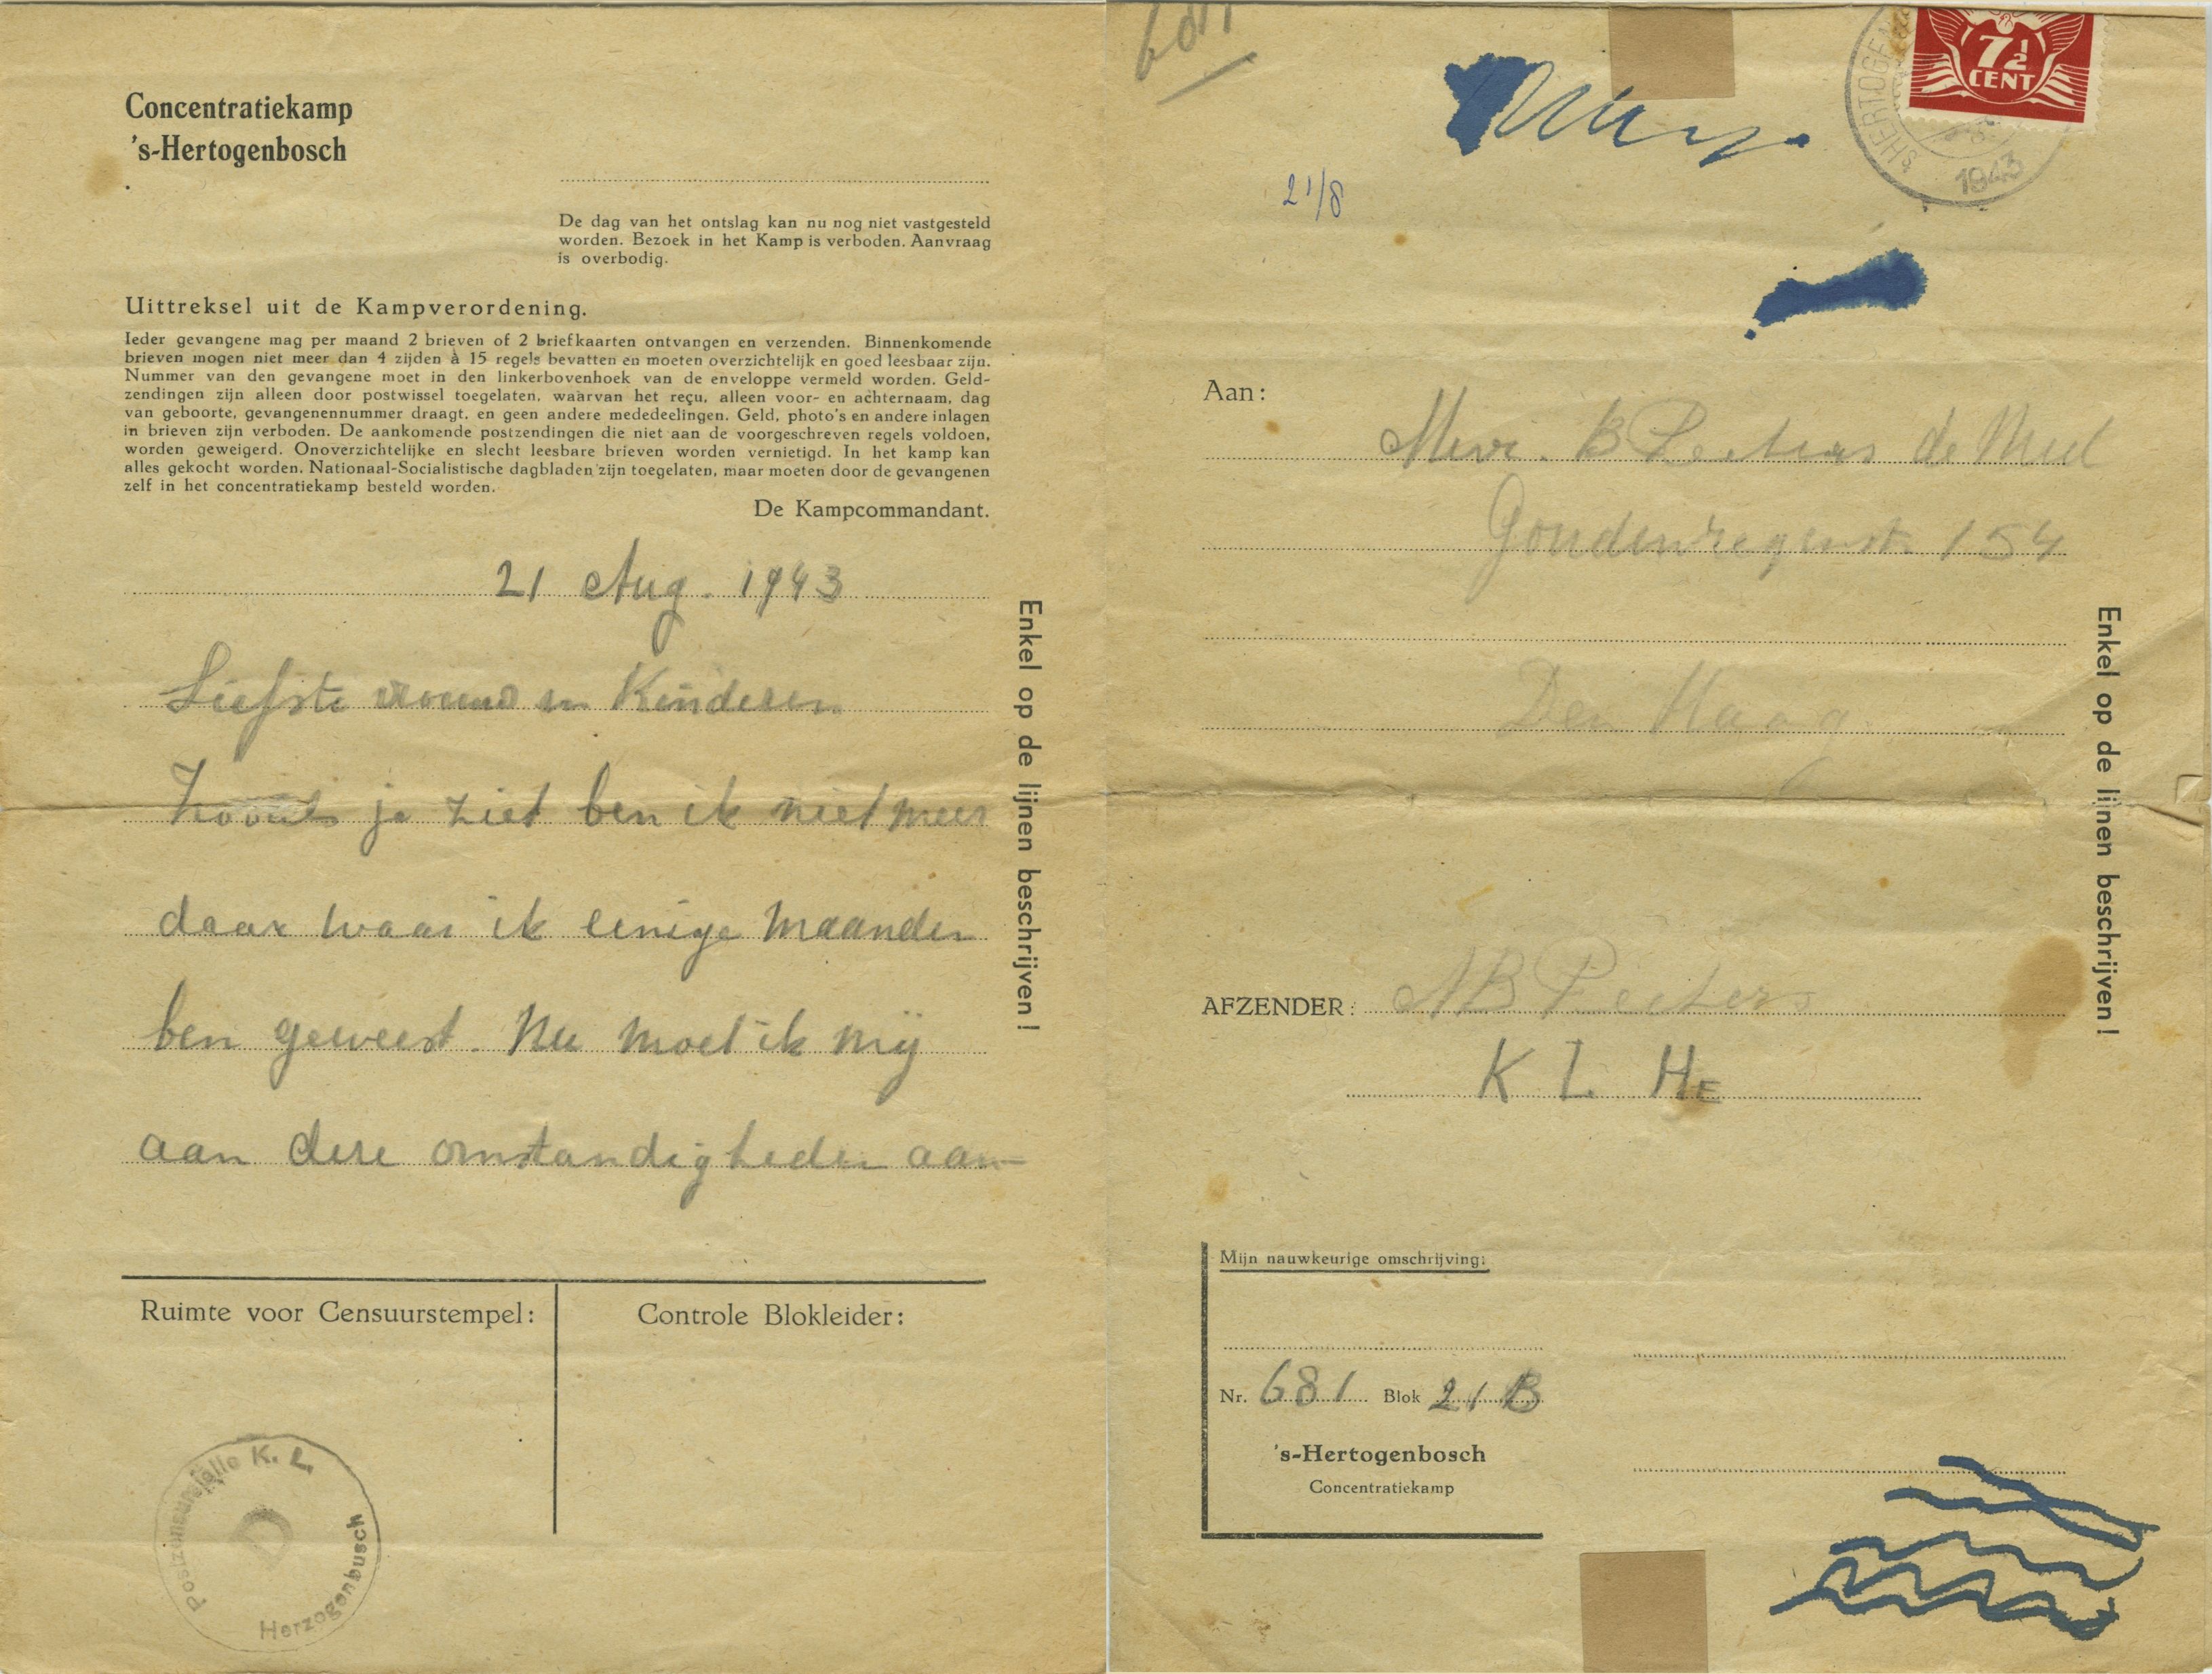 Concentratiekamp
's-Hertogenbosch
De dag van het ontslag kan nu nog niet vastgesteld
worden. Bezoek in het Kamp is verboden. Aanvraag
is overbodig.
Uittreksel uit de Kampverordening.
Ieder gevangene mag per maand 2 brieven of 2 briefkaarten ontvangen en verzenden. Binnenkomende
brieven mogen niet meer dan 4 zijden à 15 regels bevatten en moeten overzichtelijk en goed leesbaar zijn.
Nummer van den gevangene moet in den linkerbovenhoek van de enveloppe vermeld worden. Geld-
zendingen zijn alleen door postwissel toegelaten, waarvan het reçu, alleen voor- en achternaam, dag
van geboorte, gevangenennummer draagt, en geen andere mededeelingen. Geld, photo's en andere inlagen
in brieven zijn verboden. De aankomende postzendingen die niet aan de voorgeschreven regels voldoen,
worden geweigerd. Onoverzichtelijke en slecht leesbare brieven worden vernietigd. In het kamp kan
alles gekocht worden. Nationaal-Socialistische dagbladen zijn toegelaten, maar moeten door de gevangenen
zelf in het concentratiekamp besteld worden.
De Kampcommandant.
21 Aug. 1943
Liefste vrouw en Kinderen
Zooals je ziet ben ik niet meer
daar waar ik eenige maanden
ben geweest. Nu moet ik mij
aan deze omstandigheden aan-
Enkel op de lijnen beschrijven!
Ruimte voor Censuurstempel:
Controle Blokleider:
Postzensurstelle K. L.
D
Herzogenbusch
7½
CENT
'sHERTOGEN
1943
21/8
Aan:
Mevr. B Peeters de Mul
Goudenregenst. 154
Den Haag
Enkel op de lijnen beschrijven!
AFZENDER: AB Peeters
K L HE
Mijn nauwkeurige omschrijving:
Nr. 681 Blok 21 B
's-Hertogenbosch
Concentratiekamp